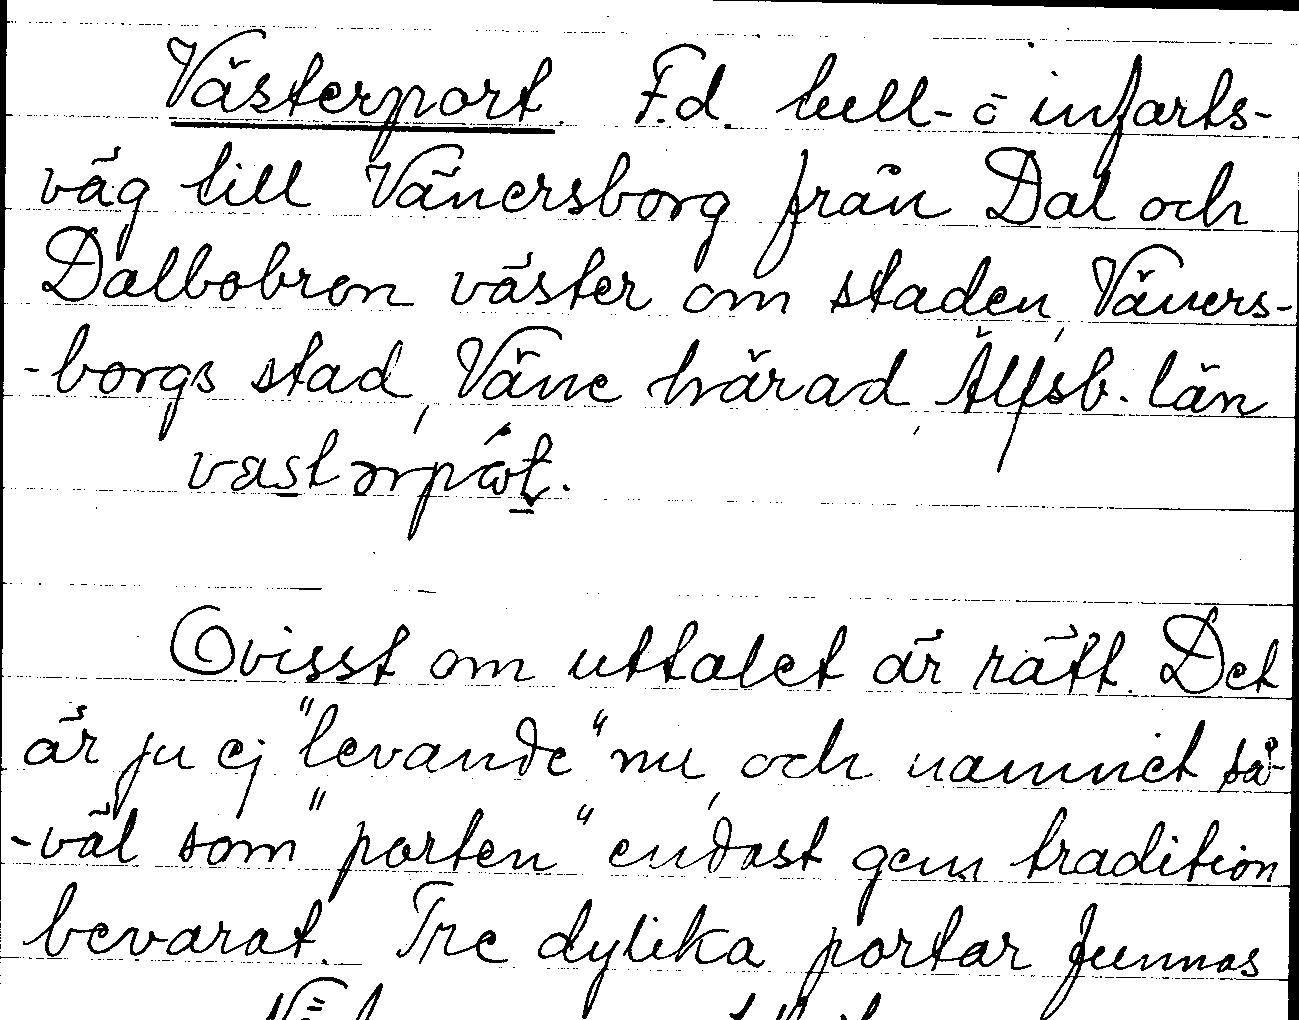 Västerport. F.d. tull- o infarts-
väg till Vänersborg från Dal och
Dalbobron väster om staden, Väners-
-borgs stad, Väne härad, Älfsb. län
Ovisst om uttalet är rätt. Det
är ju ej "levande" nu, och namnet så-
-väl som "porten" endast gem tradition
bevarat. Tre dylika portar funnas